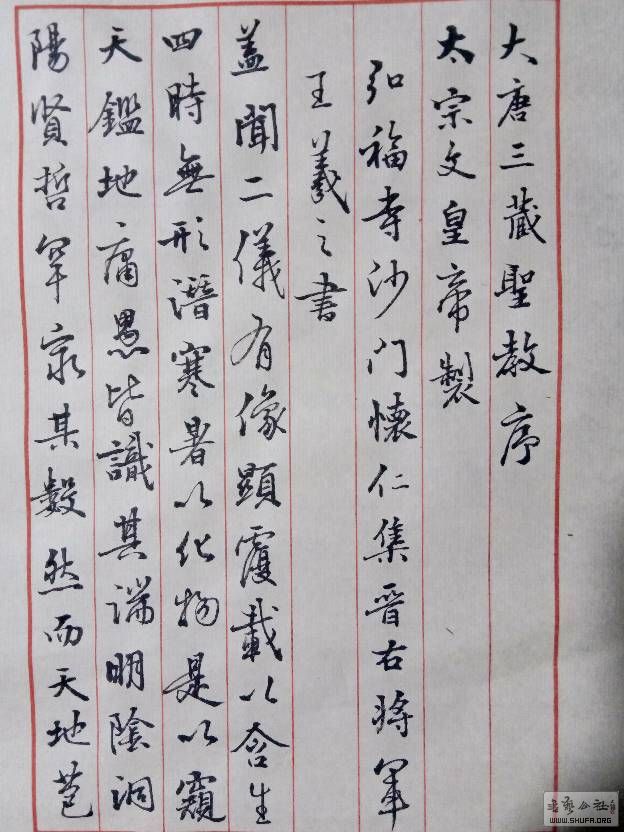 大唐三藏聖教序
太宗文皇帝製
弘福寺沙门懷仁集晉右將軍
王羲之書
盖聞二儀有像顯覆載以含生
四時無形潛寒暑以化物是以窺
天鑑地庸愚皆識其端明陰洞
陽賢哲罕窮其數然而天地苞
书艺公社
WWW.SHUFA.ORG